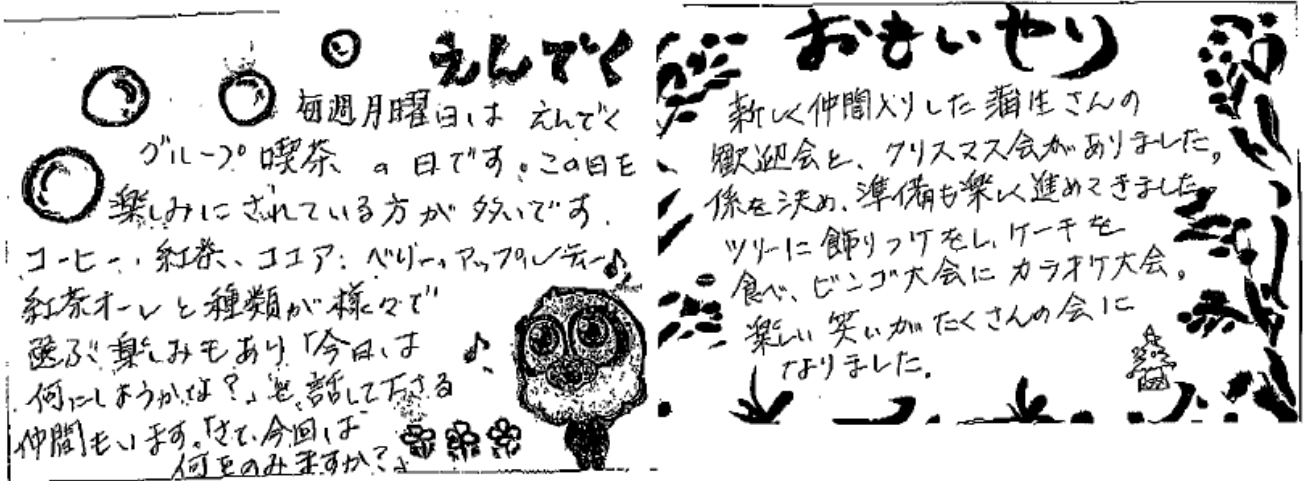 えんでく
毎週月曜日は えんでく
グループ喫茶 の日です。この日を
楽しみにされている方が多いです。
コーヒー、紅茶、ココア、ベリー、アップルティー
紅茶オーレと種類が様々で
選ぶ楽しみもあり「今日は
何にしようかな？」と話して下さる
仲間もいます。「さて、今回は
何をのみますか？」
おもいやり
新しく仲間入りした蒲生さんの
歓迎会と、クリスマス会がありました。
係を決め、準備も楽しく進めてきました。
ツリーに飾りつけをし、ケーキを
食べ、ビンゴ大会にカラオケ大会。
楽しい笑いがたくさんの会に
なりました。